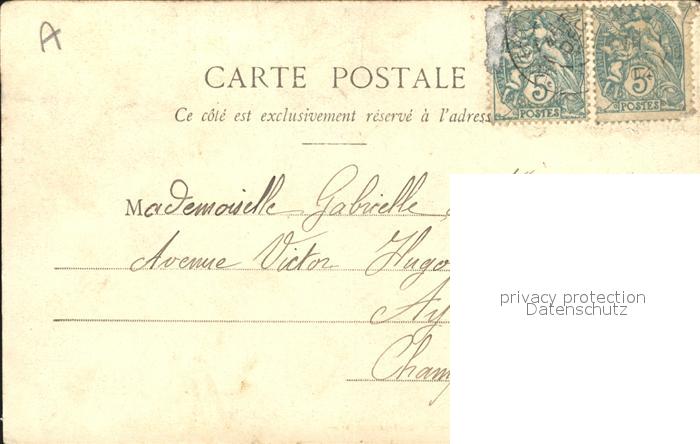 A
CARTE POSTALE
Ce côté est exclusivement réservé à l'adress
5c 5c
POSTES POSTES
Mademoiselle Gabrielle
Avenue Victor Hugo
Ay
Cham
privacy protection
Datenschutz